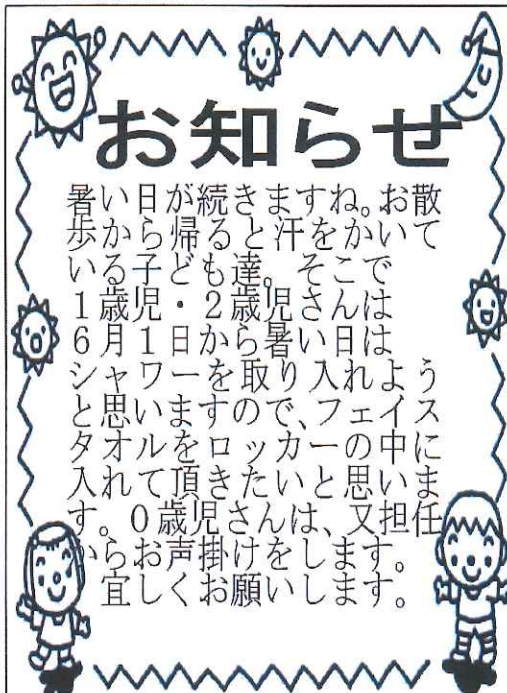 お知らせ
暑い日が続きますね。お散
歩から帰ると汗をかいて
いる子ども達。そこで
1歳児・2歳児さんは
6月1日から暑い日は
シャワーを取り入れよう
と思いますので、フェイス
タオルをロッカーの中に
入れて頂きたいと思いま
す。0歳児さんは、又担任
からお声掛けをします。
宜しくお願いします。